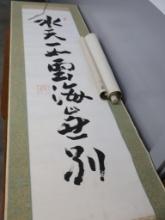 水天雲海無別